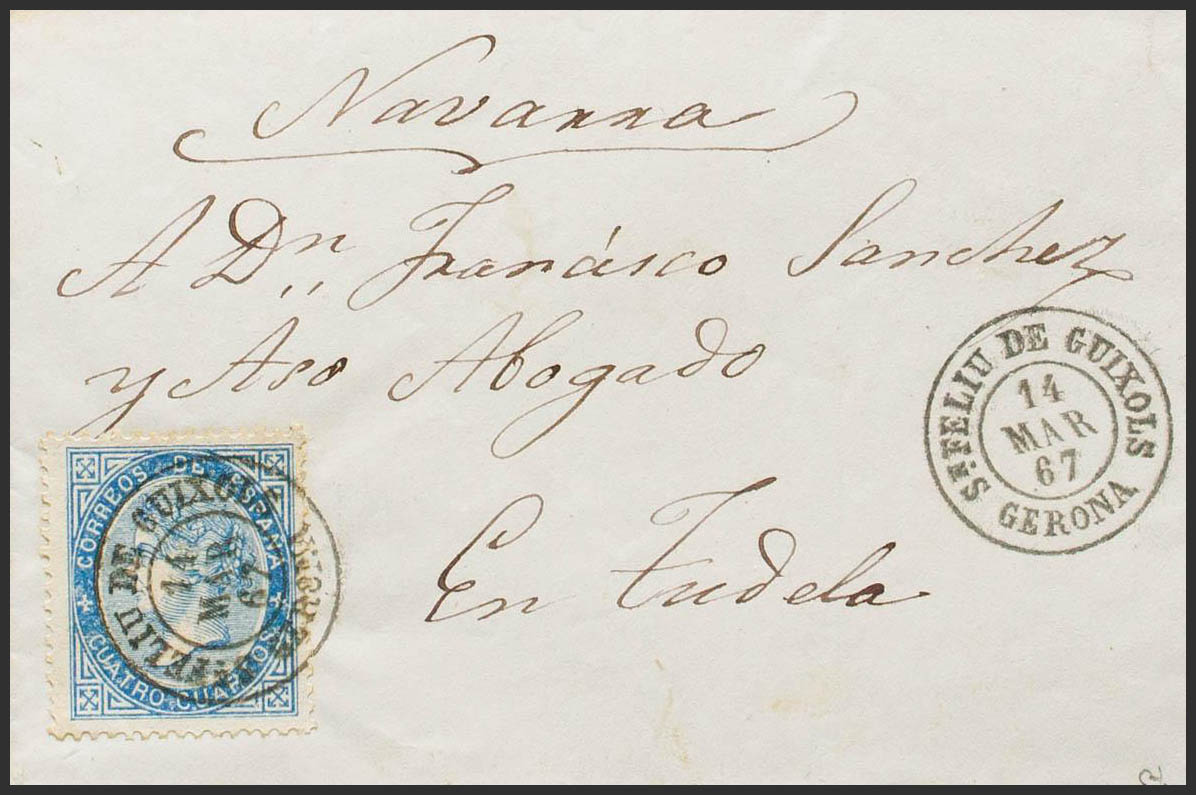 Navarra
A Dn. Francisco Sanchez
y Aso Abogado
En Tudela
Sn. FELIU DE GUIXOLS
14
MAR
67
GERONA
CORREOS DE ESPAÑA
CUATRO CUARTOS
Sn. FELIU DE GUIXOLS
14
MAR
67